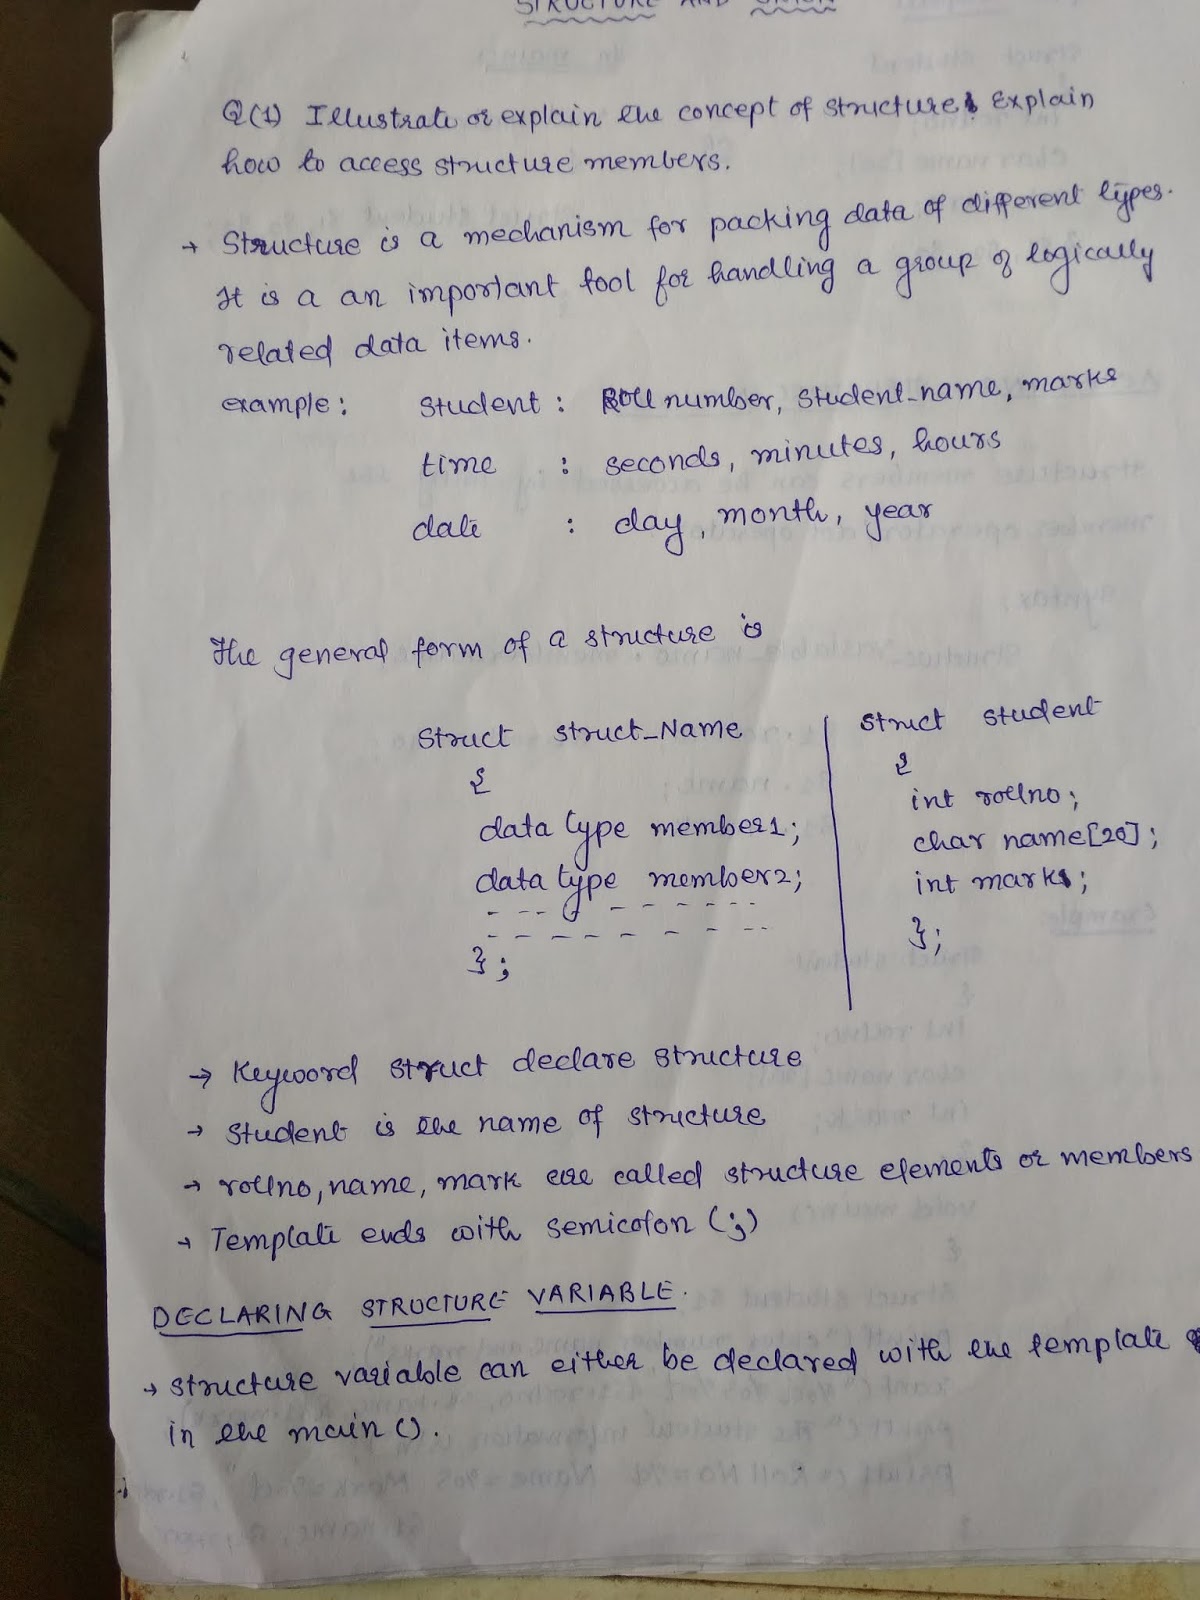 STRUCTURE AND UNION
Q(1) Illustrate or explain the concept of structure. Explain
how to access structure members.
→ Structure is a mechanism for packing data of different types.
It is a an important tool for handling a group of logically
related data items.
example: student : Roll number, student_name, marks
time : seconds, minutes, hours
date : day, month, year
The general form of a structure is
struct struct_Name
{
data type member1;
data type member2;
- - - - - - - - -
- - - - - - - - -
};
struct student
{
int rollno;
char name[20];
int marks;
};
→ Keyword struct declare structure
→ student is the name of structure
→ rollno, name, mark are called structure elements or members
→ Template ends with semicolon (;)
DECLARING STRUCTURE VARIABLE.
→ structure variable can either be declared with the template
in the main ().